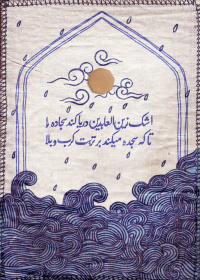 اشک زین العابدین دریا کند سجاده را
تا که سجده میکند بر تربت کرب و بلا